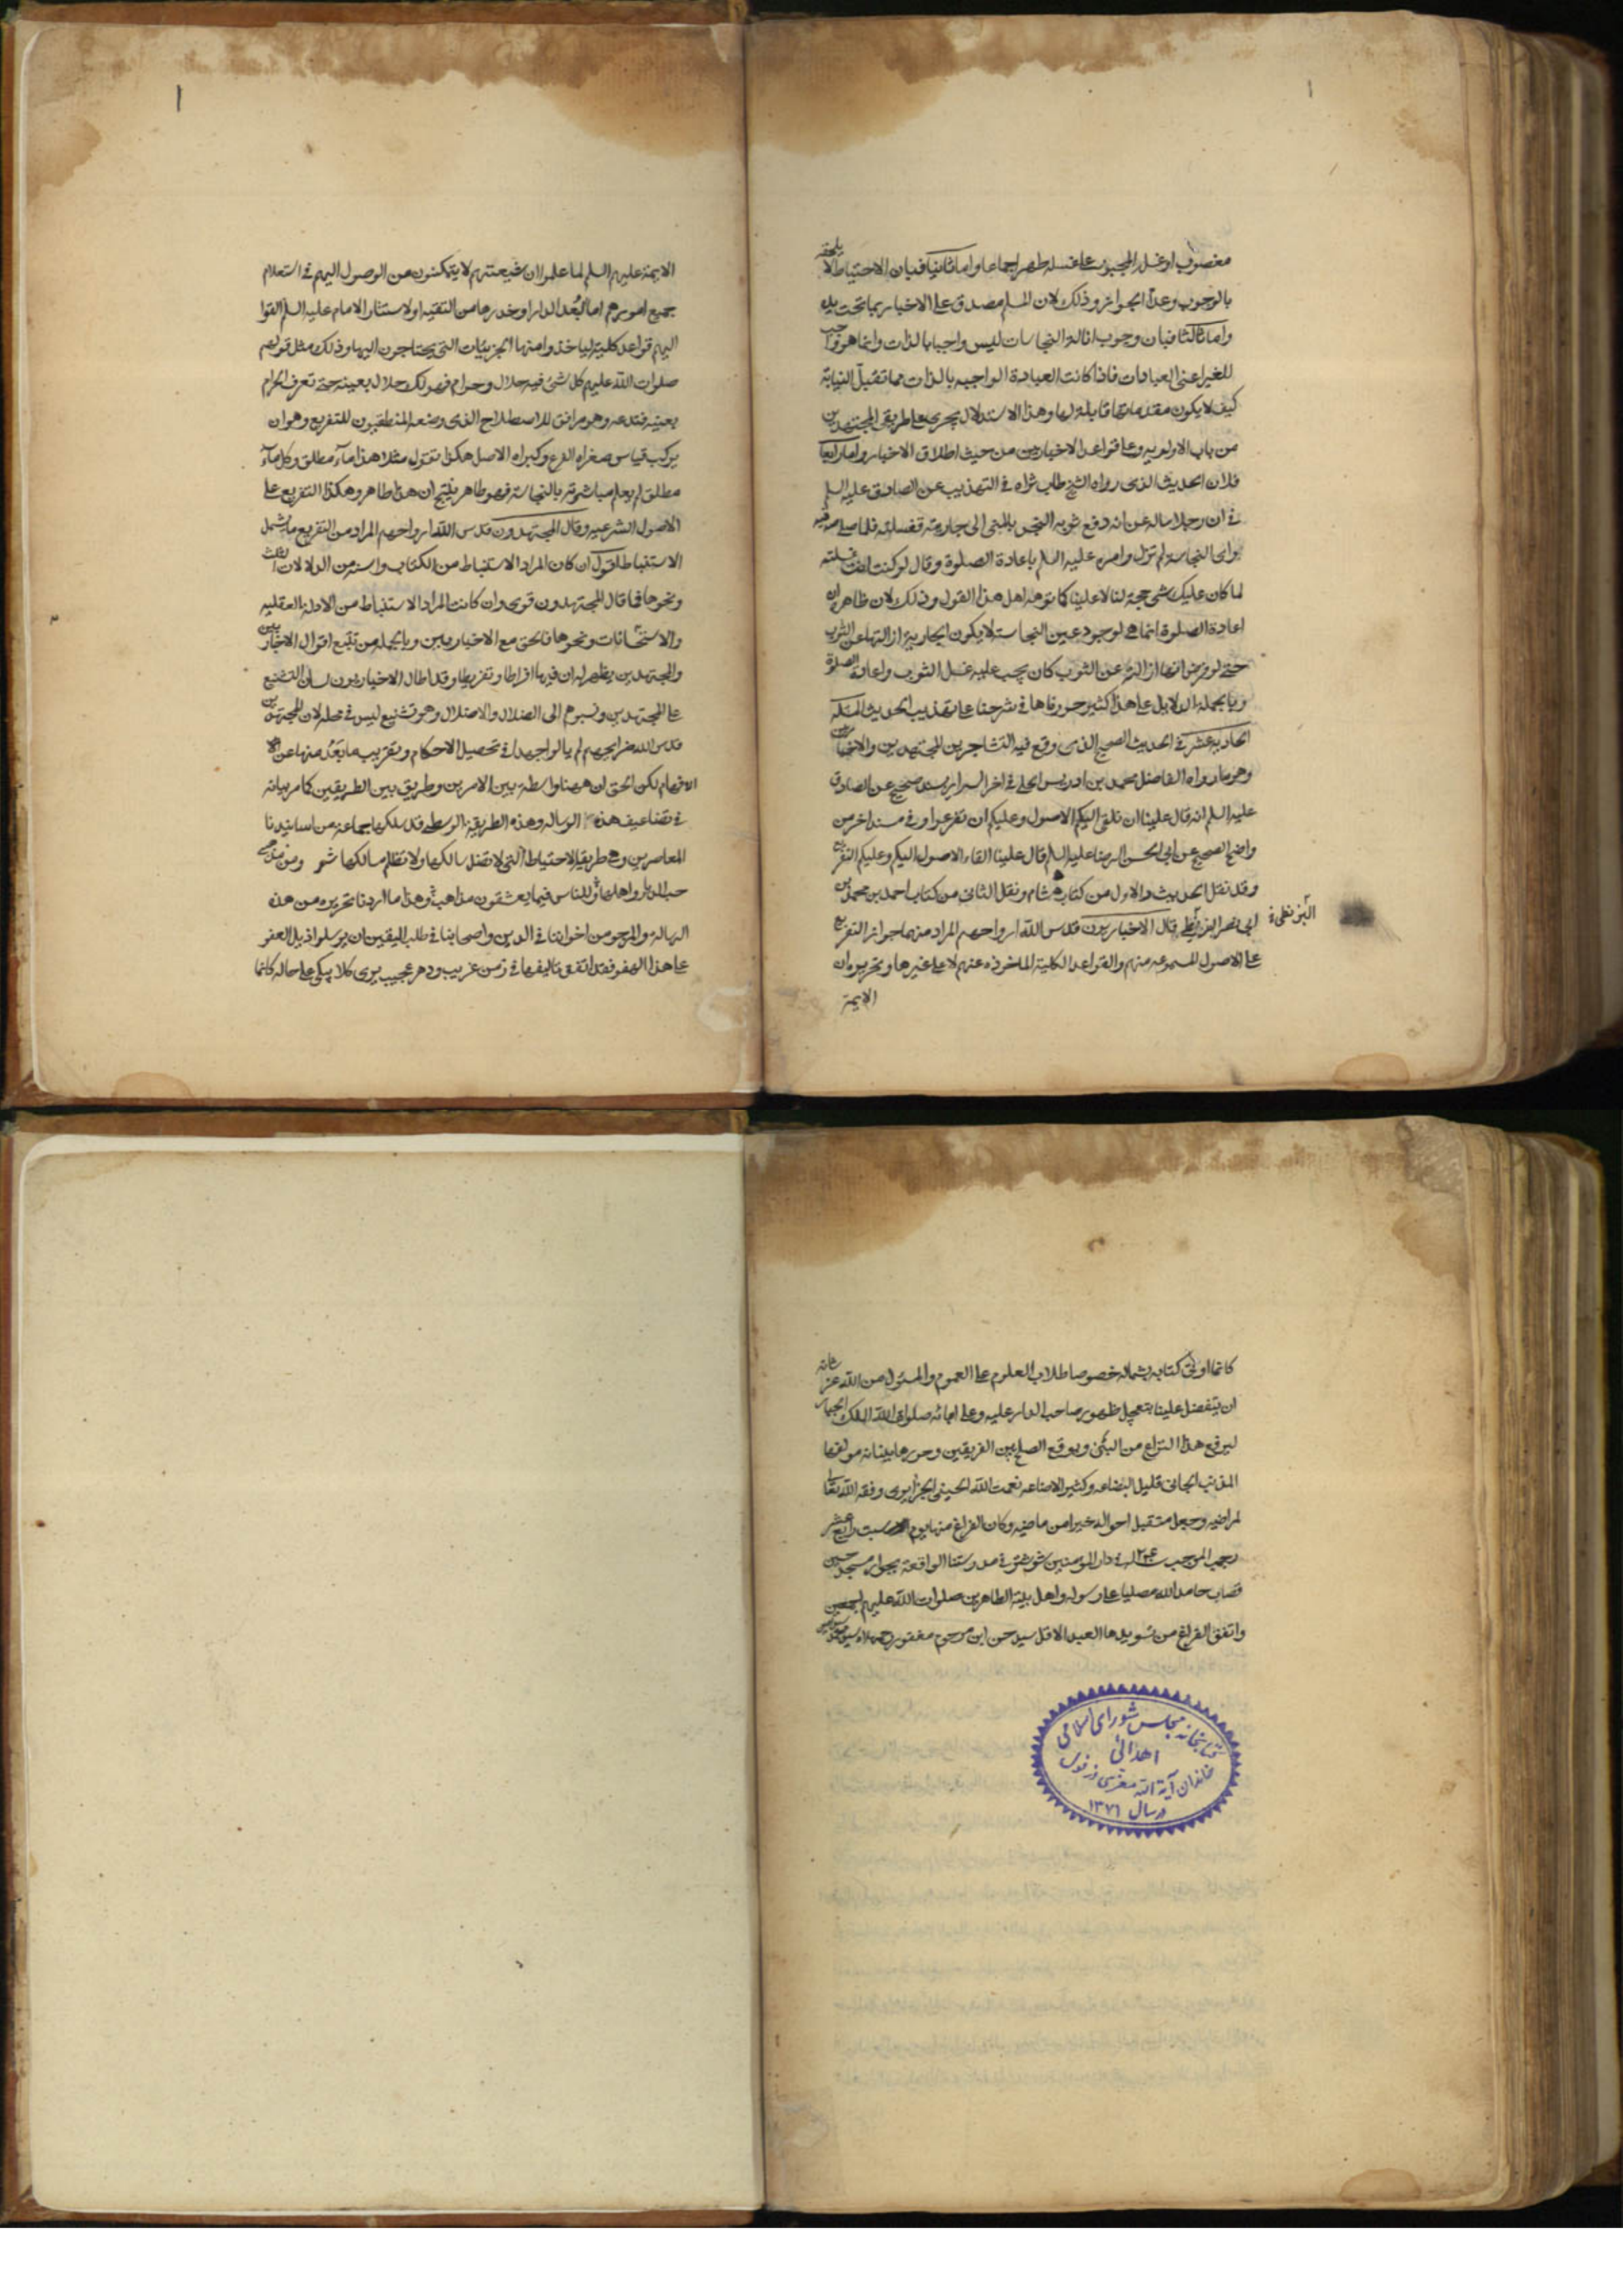 مغصوب او غسل المجبور على غسله طهر اجماعا واما ثانيا فبان الاحتياط لا يلحقه
بالوجوب وعدا الجوائز وذلك لان المسلم مصدق على الاخبار بما تحت يده
واما ثالثا فبان وجوب ازالة النجاسات ليس واجبا بالذات وانما هو واجب
للغير اعنى العبادات فاذا كانت العبادة الواجبه بالذات مما تقبل النيابة
كيف لا يكون مقدماتها قابلة لها وهذا الاستدلال يجرى على طريق المجتهدين
من باب الاولويه وعلى قواعد الاخباريين من حيث اطلاق الاخبار واما رابعا
فلان الحديث الذى رواه الشيخ طاب ثراه فى التهذيب عن الصادق عليه السلم
فى ان رجلا ساله عن انه دفع ثوبه النجس بالمنى الى جاريته تغسله فلما صلى فيه
راى النجاسة لم تزل وامره عليه السلم باعادة الصلوة وقال لو كنت انت غسلته
لما كان عليك شى حجة لنا لا علينا كما توهه اهل هذا القول وذلك لان ظاهره ان
اعادة الصلوة انما هى لوجود عين النجاسة لا يكون الجارية ازالتها عن الثوب
حتى لو فرض انها ازالته عن الثوب كان يجب عليه غسل الثوب واعادة الصلوة
وبالجمله الدلايل على هذا كثير حررناها فى شرحنا على تهذيب الحديث المسئلة
الحادية عشر فى الحديث الصحيح الذى وقع فيه التشاجر بين المجتهدين والاخباريين
وهو ما رواه الفاضل محمد بن ادريس الحلى فى اخر السراير بسند صحيح عن الصادق
عليه السلم انه قال علينا ان نلقى اليكم الاصول وعليكم ان تفرعوا وفى مسند اخر من
واضح الصحيح عن ابى الحسن الرضا عليه السلم قال علينا القاء الاصول اليكم وعليكم التفريع
وقد نقل الحديث والاول من كتاب هشام ونقل الثانى من كتاب احمد بن محمد بن
ابى نصر البزنطى قال الاخباريون قدس الله ارواحهم المراد منها جواز التفريع
البزنطى
على الاصول المسموعه منهم والقواعد الكلية الماخوذه عنهم لا على غيرها وتحريره ان
الايمة
الايمة عليهم السلم لما علموا ان شيعتهم لا يتمكنون من الوصول اليهم فى استعلام
جميع امورهم اما لبُعد الدار او خدرها من التقيه او لاستتار الامام عليه السلم القوا
اليهم قواعد كلية لياخذوا منها الجزئيات التى يحتاجون اليها وذلك مثل قولهم
صلوات الله عليهم كل شئ فيه حلال وحرام فهو لك حلال بعينه حتى تعرف الحرام
بعينه فتدعه وهو مرافق للاصطلاح الذى وضعه المنطقيون للتفريع وهو ان
يركب قياس صغراه الفرع وكبراه الاصل هكذا تقول مثلا هذا مآء مطلق وكل مآء
مطلق لم يعلم مباشرته بالنجاسة فهو طاهر ينتج ان هذا طاهر وهكذا التفريع على
الاصول الشرعيه وقال المجتهدون قدس الله ارواحهم المراد من التفريع ما يشمل
الاستنباط اقول ان كان المراد الاستنباط من الكتاب والسنه من الدلالات الثلث
ونحوها فما قال المجتهدون قوى وان كانت المراد الاستنباط من الادلة العقليه
والاستحسانات ونحوها فالحق مع الاخباريين وبالجمله من تتبع اقوال الاخباريين
والمجتهدين يظهر له ان فيها افراطا وتفريطا وقد اطال الاخباريون لسان التشنيع
على المجتهدين ونسبوهم الى الضلال والاضلال وهو تشنيع ليس فى محله لان المجتهدين
قدس الله ضرايحهم لم يالوا جهدا فى تحصيل الاحكام وتقريب ما بَعُد منها عن
الافهام لكن الحق ان هيهنا واسطة بين الامرين وطريق بين الطريقين كما مر بيانه
فى تضاعيف هذه الرساله وهذه الطريقة الوسطى قد سلكها جماعة من اساتيدنا
المعاصرين وهى طريقة الاحتياط التى لا تضل سالكها ولا تظلم مسالكها شعر ومن مذهبى
حب الديار واهلها وللناس فيما يعشقون مذاهب وهذا ما اردنا تحريره من هذه
الرسالة والمرجو من اخواننا فى الدين واصحابنا فى طلب اليقين ان يرسلوا ذيل العفو
على هذا الهفو فقد اتفق تاليفها فى زمن غريب ودهر عجيب يرى كلا يبكى على حاله كانما
كانما اوتى كتابه بشماله خصوصا طلاب العلوم على العموم والمسئول من الله عز شانه
ان يتفضل علينا بتعجيل ظهور صاحب الدار عليه وعلى ابائه صلوات الله الملك الجبار
ليرفع هذا النزاع من البين ويوقع الصلح بين الفريقين وحررها ببنانه مولفها
المذنب الجانى قليل البضاعه وكثير الاضاعه نعمت الله الحسينى الجزايرى وفقه الله تعالى
لمراضيه وجعل مستقبل احواله خيرا من ماضيه وكان الفراغ منها يوم السبت رابع عشر
رجب المرجب فى دار المومنين شوشتر فى مدرستنا الواقعة بجوار مسجد حسين
قصاب حامدا لله مصليا على رسوله واهل بيته الطاهرين صلوات الله عليهم اجمعين
واتفق الفراغ من تسويدها العبد الاقل سيد حسن ابن مرحوم مغفور
كتابخانه مجلس شورای اسلامی
اهدائی
خاندان آیة الله معزی دزفولی
در سال ۱۳۷۱